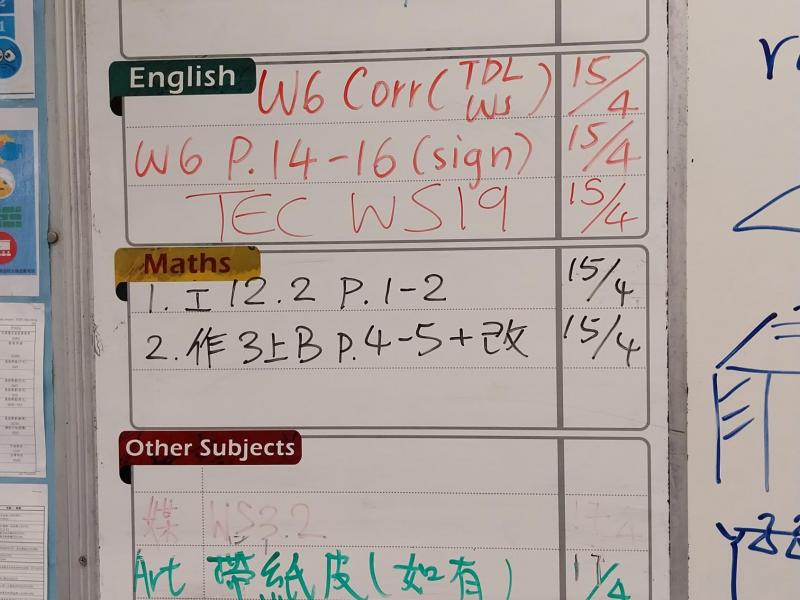 English
W6 Corr(TDL WS) 15/4
W6 P.14-16(sign) 15/4
TEC WS19 15/4
Maths
1. 工 12.2 P.1-2 15/4
2. 作 3上B P.4-5+改 15/4
Other Subjects
WS3.2
Art 帶紙皮(如有) 17/4